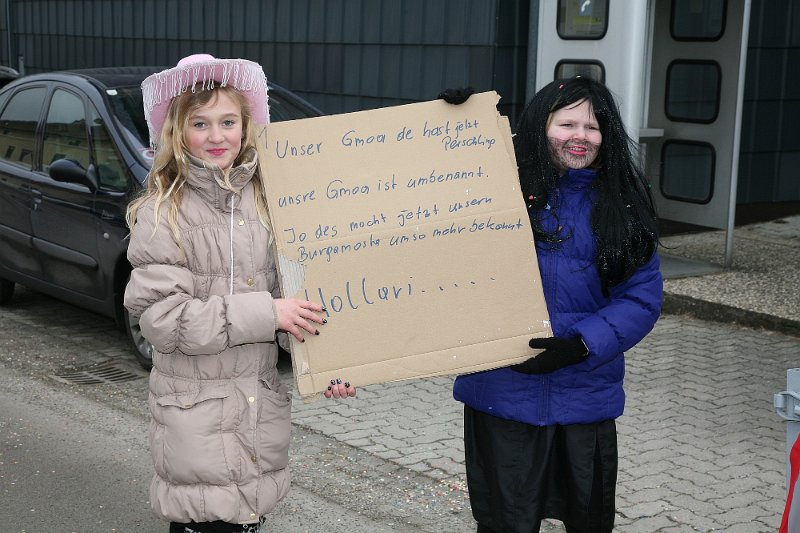 Unser Gmoa de hast jetzt
Perschling
unsre Gmoa ist umbenannt.
Jo des mocht jetzt unsern
Burgamasta umso mehr bekannt
Hollari.....